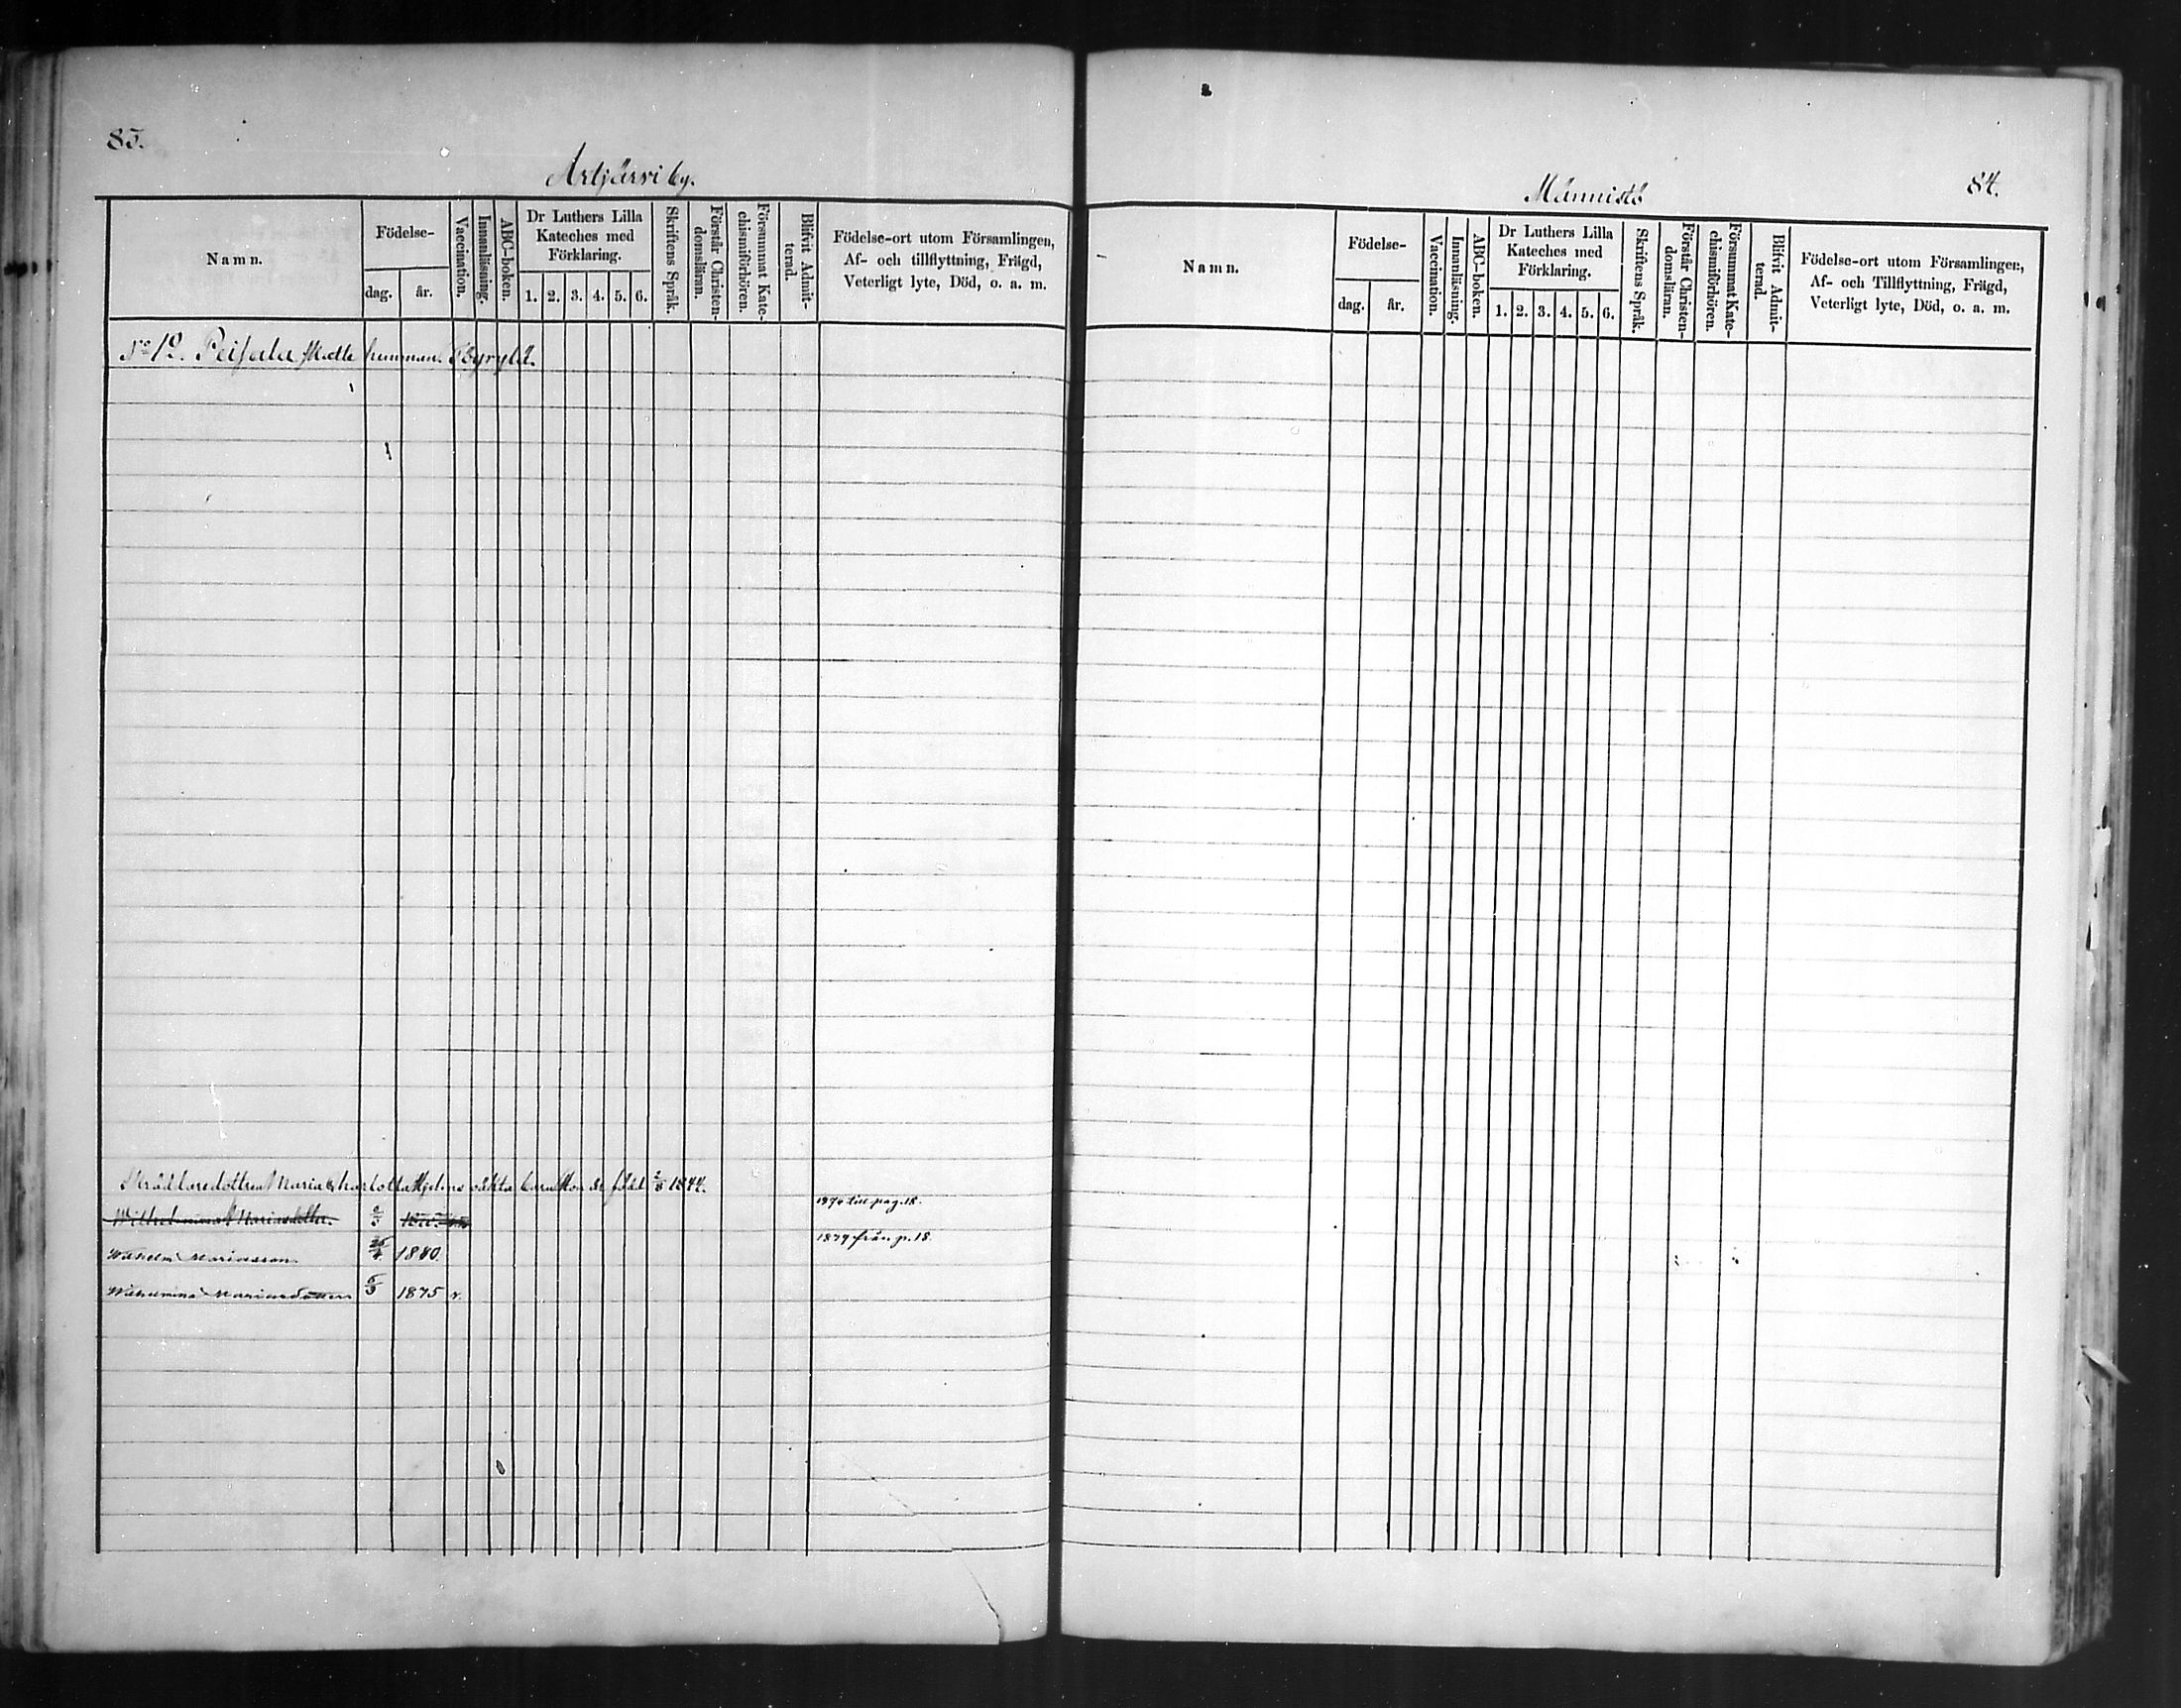 83.
Artjärvi by.
Namn.
Födelse-
dag.
år.
Vaccination.
Innanläsning.
ABC-boken.
Dr Luthers Lilla
Kateches med
Förklaring.
1. 2. 3. 4. 5. 6.
Skriftens Språk.
Förstår Christen-
domsläran.
Försummat Kate-
chismiförhören.
Blifvit Admit-
terad.
Födelse-ort utom Församlingen,
Af- och tillflyttning, Frägd,
Veterligt lyte, Död, o. a. m.
No 12. Peisala
Skräddaredottren Maria Charlotta oäkta barn född 1844.
1876 till pag. 18.
Wilhelmina Mariasdotter
1879 från p. 18.
Wilhelm Mariasson 1880.
Wilhelmina Mariasdotter 5/3 1875 v.
Männistö
84.
Namn.
Födelse-
dag.
år.
Vaccination.
Innanläsning.
ABC-boken.
Dr Luthers Lilla
Kateches med
Förklaring.
1. 2. 3. 4. 5. 6.
Skriftens Språk.
Förstår Christen-
domsläran.
Försummat Kate-
chismiförhören.
Blifvit Admit-
terad.
Födelse-ort utom Församlingen,
Af- och Tillflyttning, Frägd,
Veterligt lyte, Död, o. a. m.